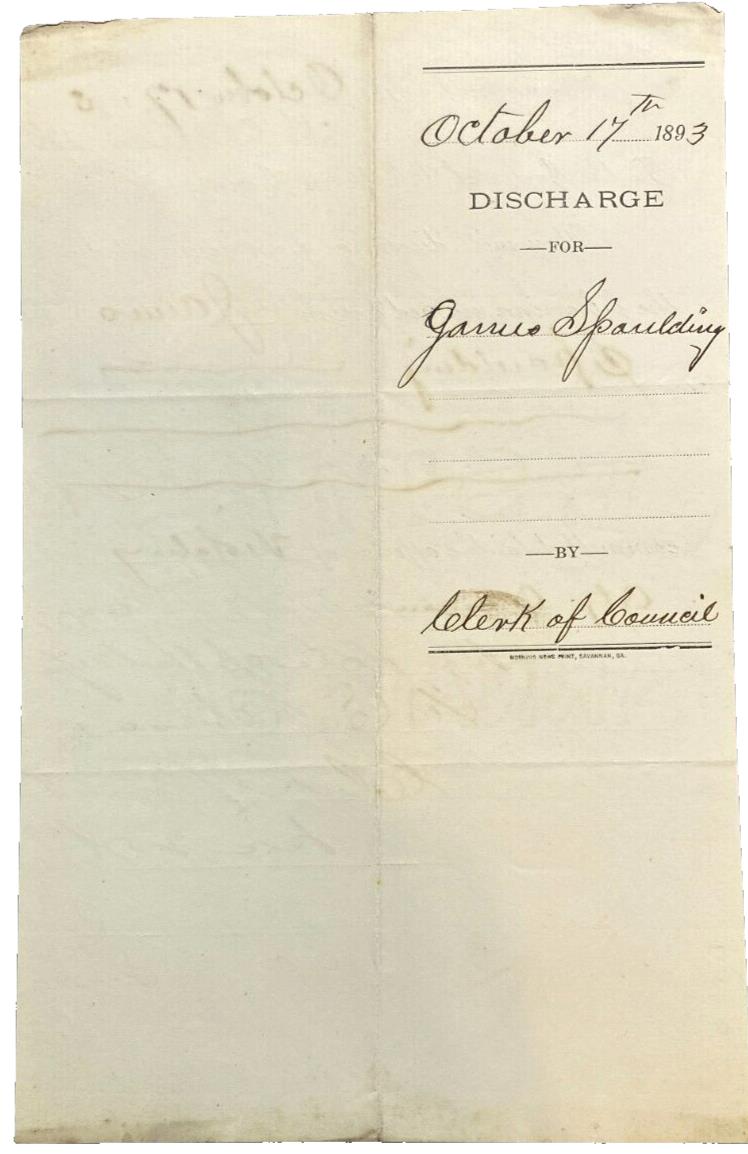 October 17th 1893
DISCHARGE
—FOR—
James Spaulding
—BY—
Clerk of Council
MORNING NEWS PRINT, SAVANNAH, GA.